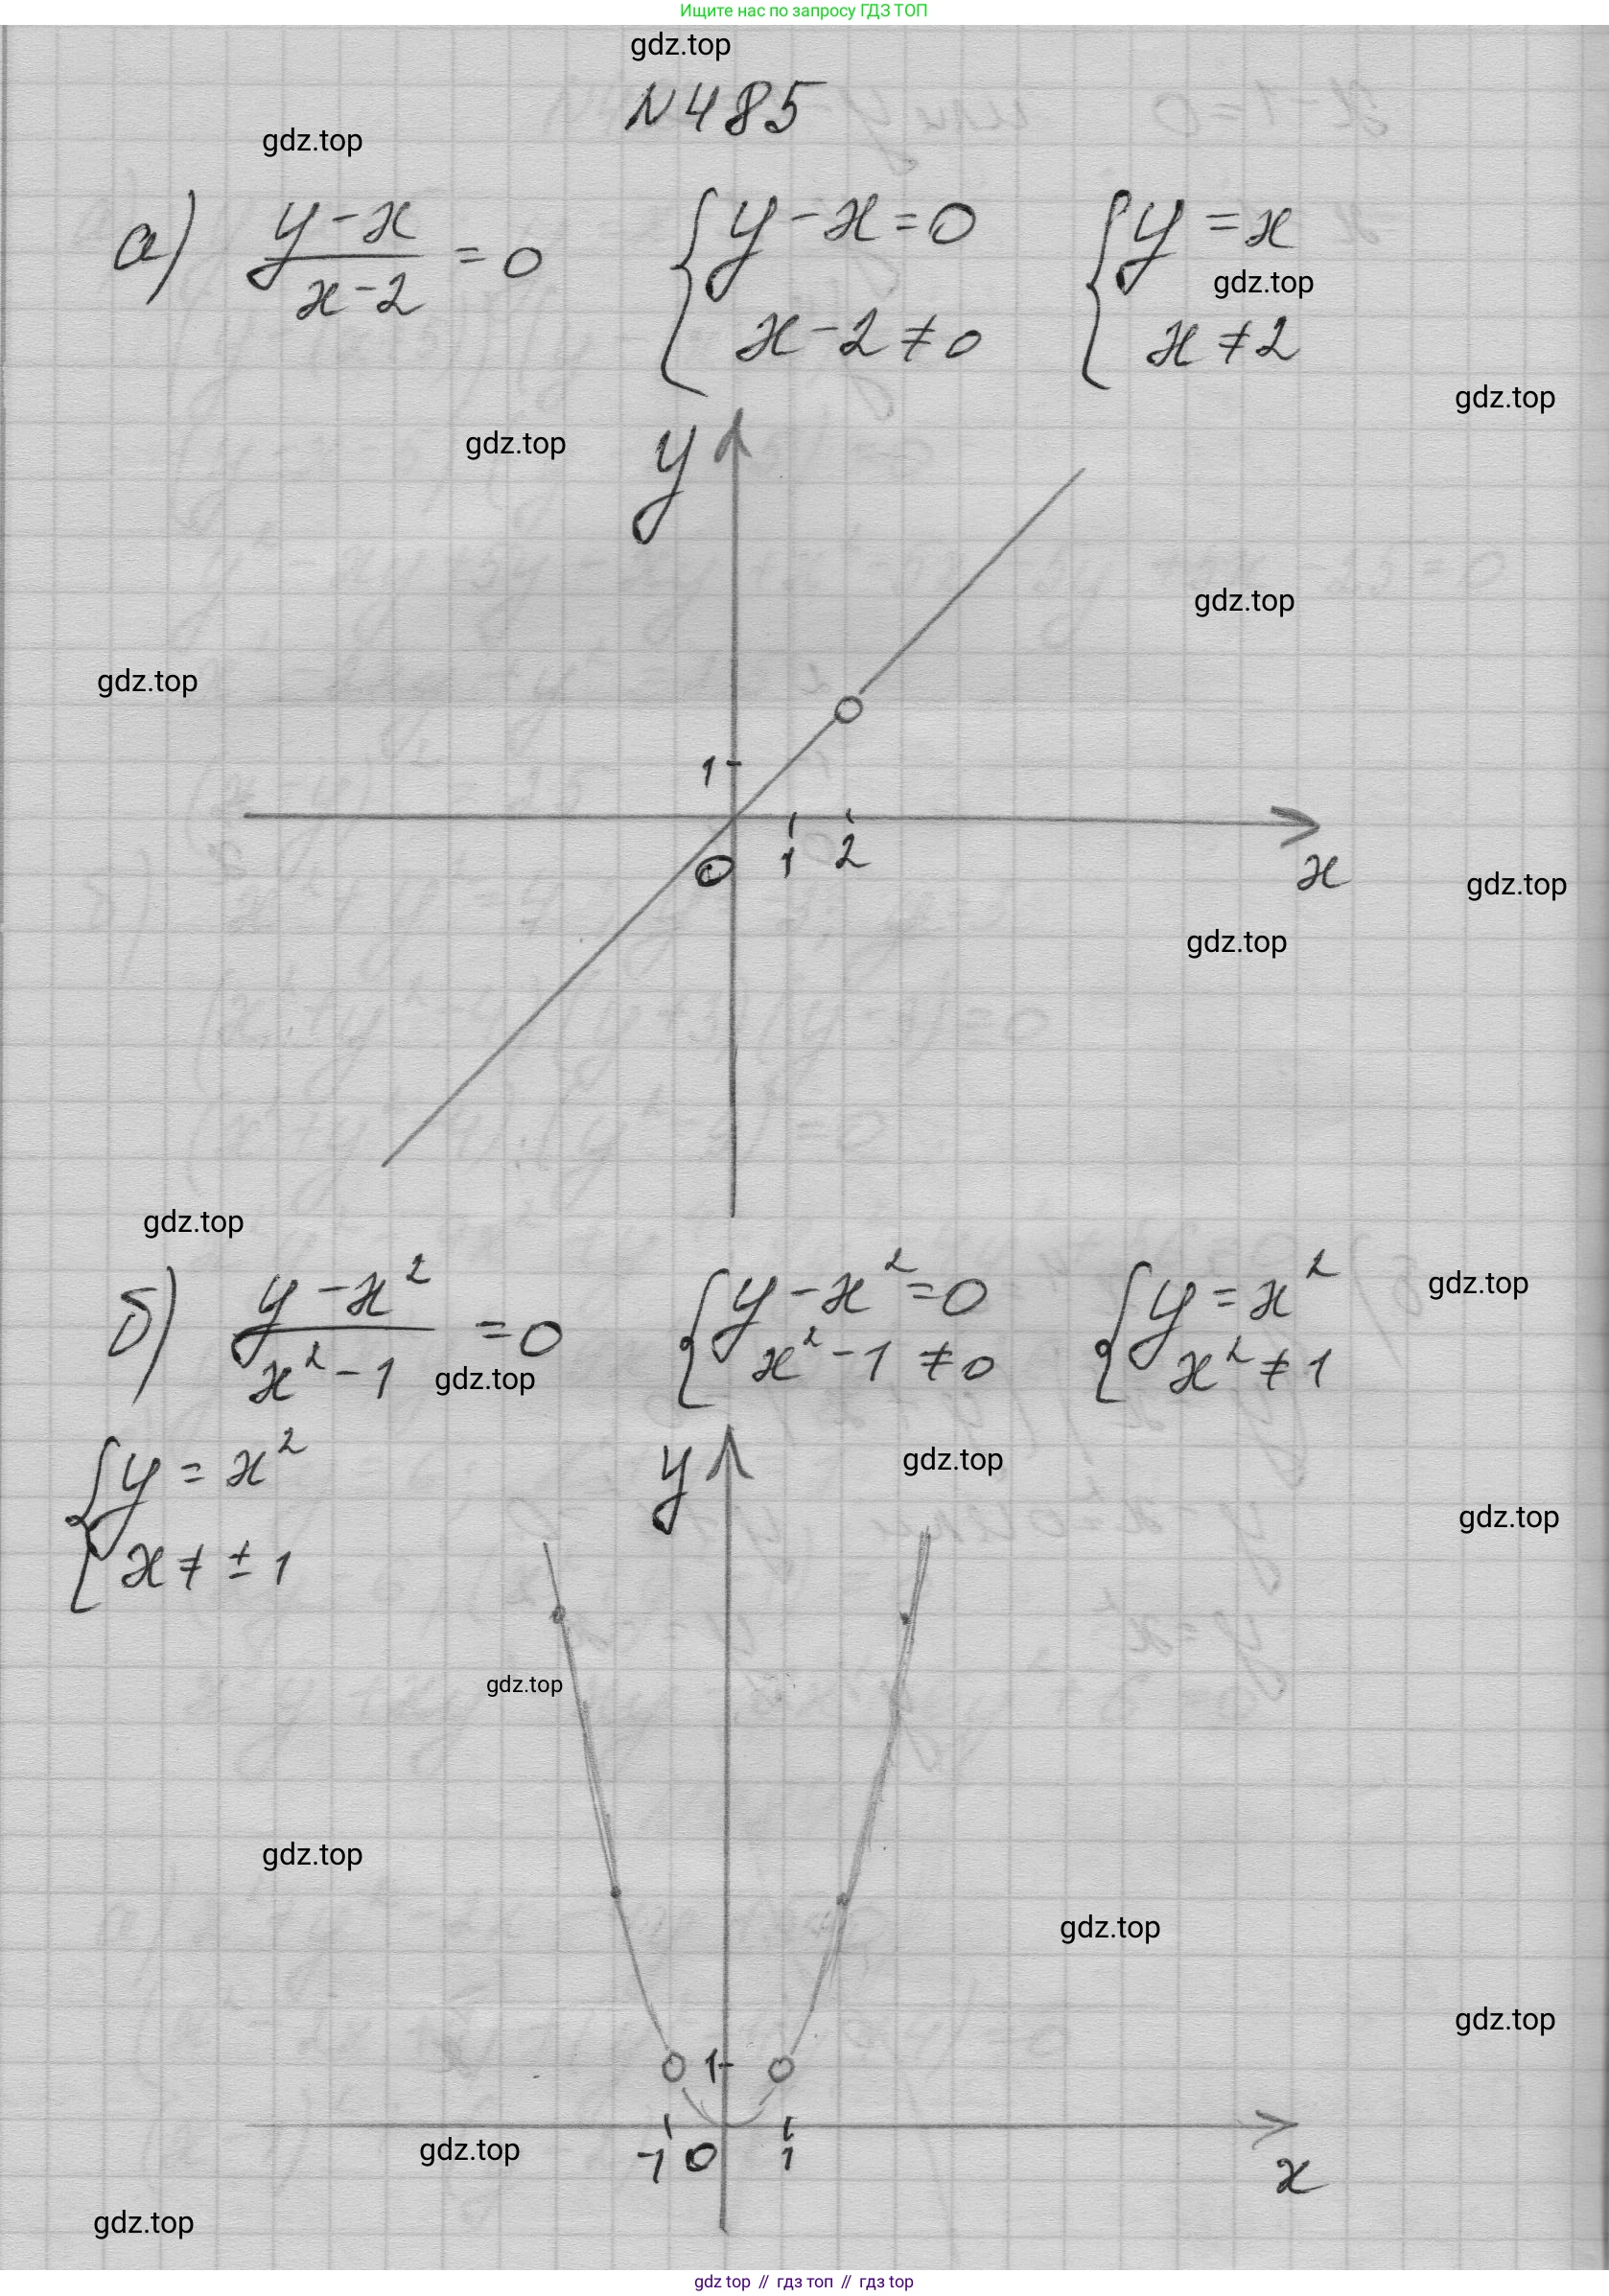 Ищите нас по запросу ГДЗ ТОП
gdz.top
N485
gdz.top
а) (y-x)/(x-2) = 0 { y-x=0 { y=x
gdz.top
x-2≠0 x≠2
gdz.top
y
gdz.top
gdz.top
gdz.top
1
0 1 2 x
gdz.top
gdz.top
gdz.top
б) (y-x²)/(x²-1) = 0 { y-x²=0 { y=x²
gdz.top
x²-1≠0 x²≠1
gdz.top
{ y=x²
x≠±1
y
gdz.top
gdz.top
gdz.top
gdz.top
gdz.top
gdz.top
1
-1 0 1 x
gdz.top
gdz.top
gdz top // гдз топ // гдз top